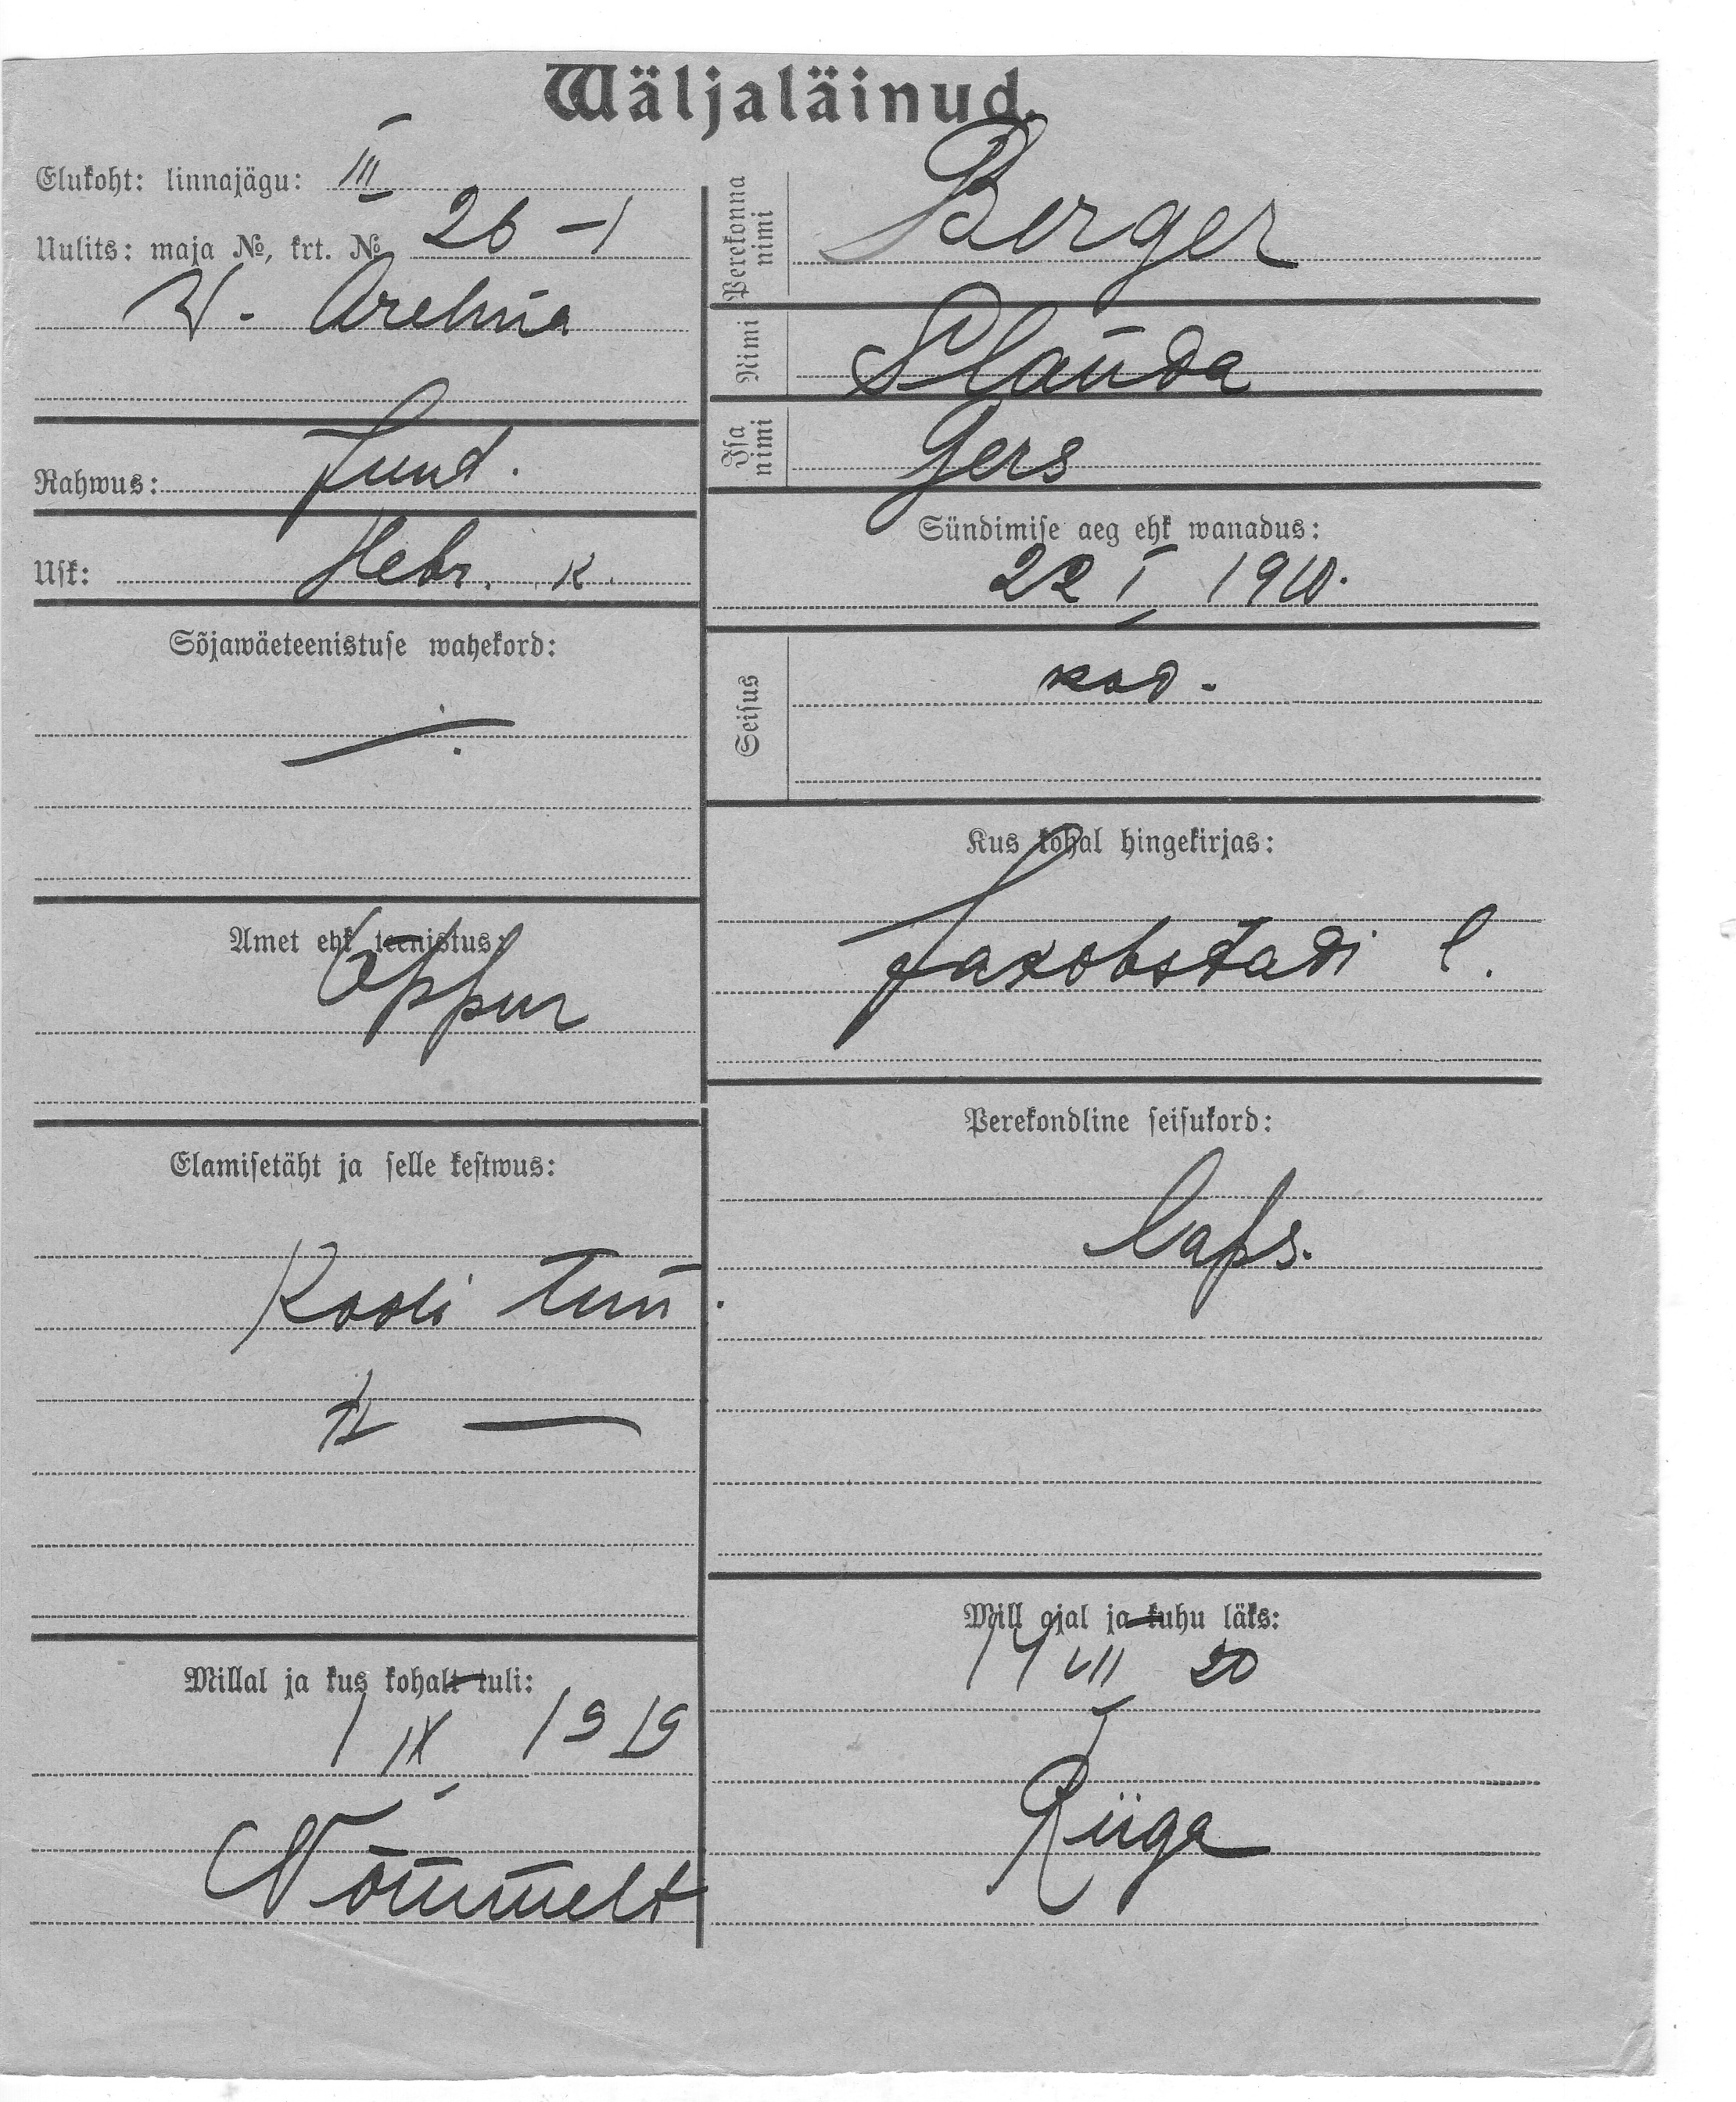 Wäljaläinud.
Elukoht: linnajägu: III
Uulits: maja №, krt. № 26 - 1
W.
Rahwus: Juut.
Usk: Hebr. k.
Sõjawäeteenistuse wahekord:
Amet ehk teenistus:
Õppur
Elamisetäht ja selle kestwus:
Kooli tun.
Millal ja kus kohalt tuli:
1 IX 1919
Nõmmelt
Perekonna nimi Berger
Nimi Klauda
Isa nimi Gers
Sündimise aeg ehk wanadus:
22 I 1910.
Seisus kod.
Kus kohal hingekirjas:
Jakobstadi l.
Perekondline seisukord:
laps.
Mill ajal ja kuhu läks:
14 VII 20
Riiga